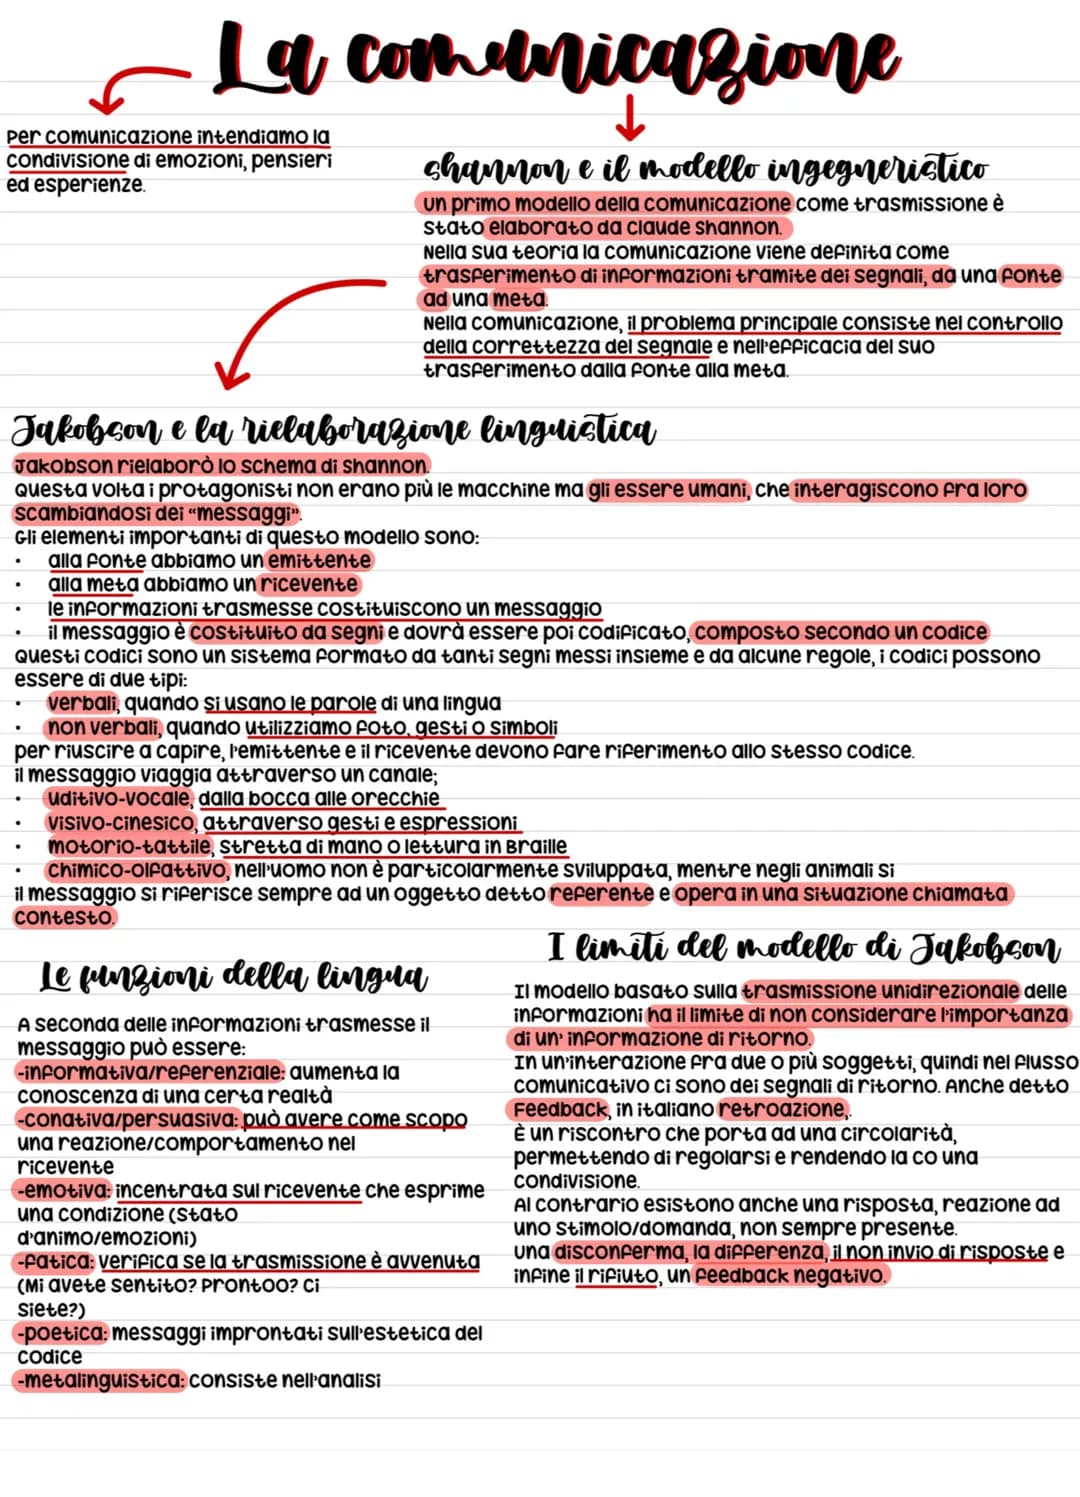 La comunicazione
Per comunicazione intendiamo la
condivisione di emozioni, pensieri
ed esperienze.
shannon e il modello ingegneristico
un primo modello della comunicazione come trasmissione è
stato elaborato da claude shannon.
Nella sua teoria la comunicazione viene definita come
trasferimento di informazioni tramite dei segnali, da una fonte
ad una meta.
Nella comunicazione, il problema principale consiste nel controllo
della correttezza del segnale e nell'efficacia del suo
trasferimento dalla fonte alla meta.
Jakobson e la rielaborazione linguistica
Jakobson rielaborò lo schema di shannon.
Questa volta i protagonisti non erano più le macchine ma gli essere umani, che interagiscono fra loro
scambiandosi dei “messaggi”.
Gli elementi importanti di questo modello sono:
• alla fonte abbiamo un emittente
• alla meta abbiamo un ricevente
• le informazioni trasmesse costituiscono un messaggio
• il messaggio è costituito da segni e dovrà essere poi codificato, composto secondo un codice
Questi codici sono un sistema formato da tanti segni messi insieme e da alcune regole, i codici possono
essere di due tipi:
• verbali, quando si usano le parole di una lingua
• non verbali, quando utilizziamo foto, gesti o simboli
per riuscire a capire, l'emittente e il ricevente devono fare riferimento allo stesso codice.
il messaggio viaggia attraverso un canale;
• uditivo-vocale, dalla bocca alle orecchie
• visivo-cinesico, attraverso gesti e espressioni
• motorio-tattile, stretta di mano o lettura in Braille
• chimico-olfattivo, nell'uomo non è particolarmente sviluppata, mentre negli animali si
il messaggio si riferisce sempre ad un oggetto detto referente e opera in una situazione chiamata
contesto.
Le funzioni della lingua
A seconda delle informazioni trasmesse il
messaggio può essere:
-informativa/referenziale: aumenta la
conoscenza di una certa realtà
-conativa/persuasiva: può avere come scopo
una reazione/comportamento nel
ricevente
-emotiva: incentrata sul ricevente che esprime
una condizione (stato
d'animo/emozioni)
-fatica: verifica se la trasmissione è avvenuta
(Mi avete sentito? Prontoo? Ci
siete?)
-poetica: messaggi improntati sull'estetica del
codice
-metalinguistica: consiste nell'analisi
I limiti del modello di Jakobson
Il modello basato sulla trasmissione unidirezionale delle
informazioni ha il limite di non considerare l'importanza
di un' informazione di ritorno.
In un'interazione fra due o più soggetti, quindi nel flusso
comunicativo ci sono dei segnali di ritorno. Anche detto
Feedback, in italiano retroazione,.
È un riscontro che porta ad una circolarità,
permettendo di regolarsi e rendendo la co una
condivisione.
Al contrario esistono anche una risposta, reazione ad
uno stimolo/domanda, non sempre presente.
una disconferma, la differenza, il non invio di risposte e
infine il rifiuto, un feedback negativo.